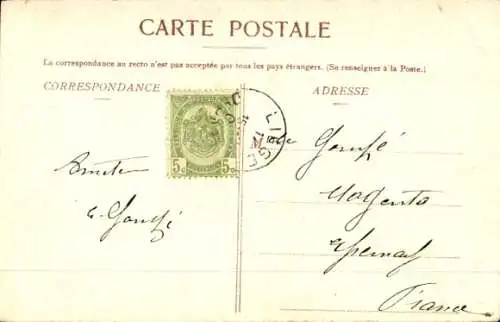 CARTE POSTALE
La correspondance au recto n'est pas acceptée par tous les pays étrangers. (Se renseigner à la Poste.)
CORRESPONDANCE
ADRESSE
5c 5c
LIEGE
Magenta
Epernay
France